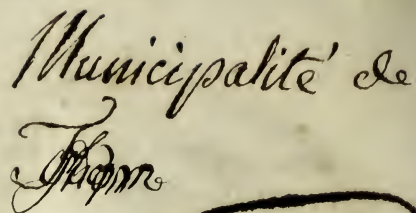 Municipalité de